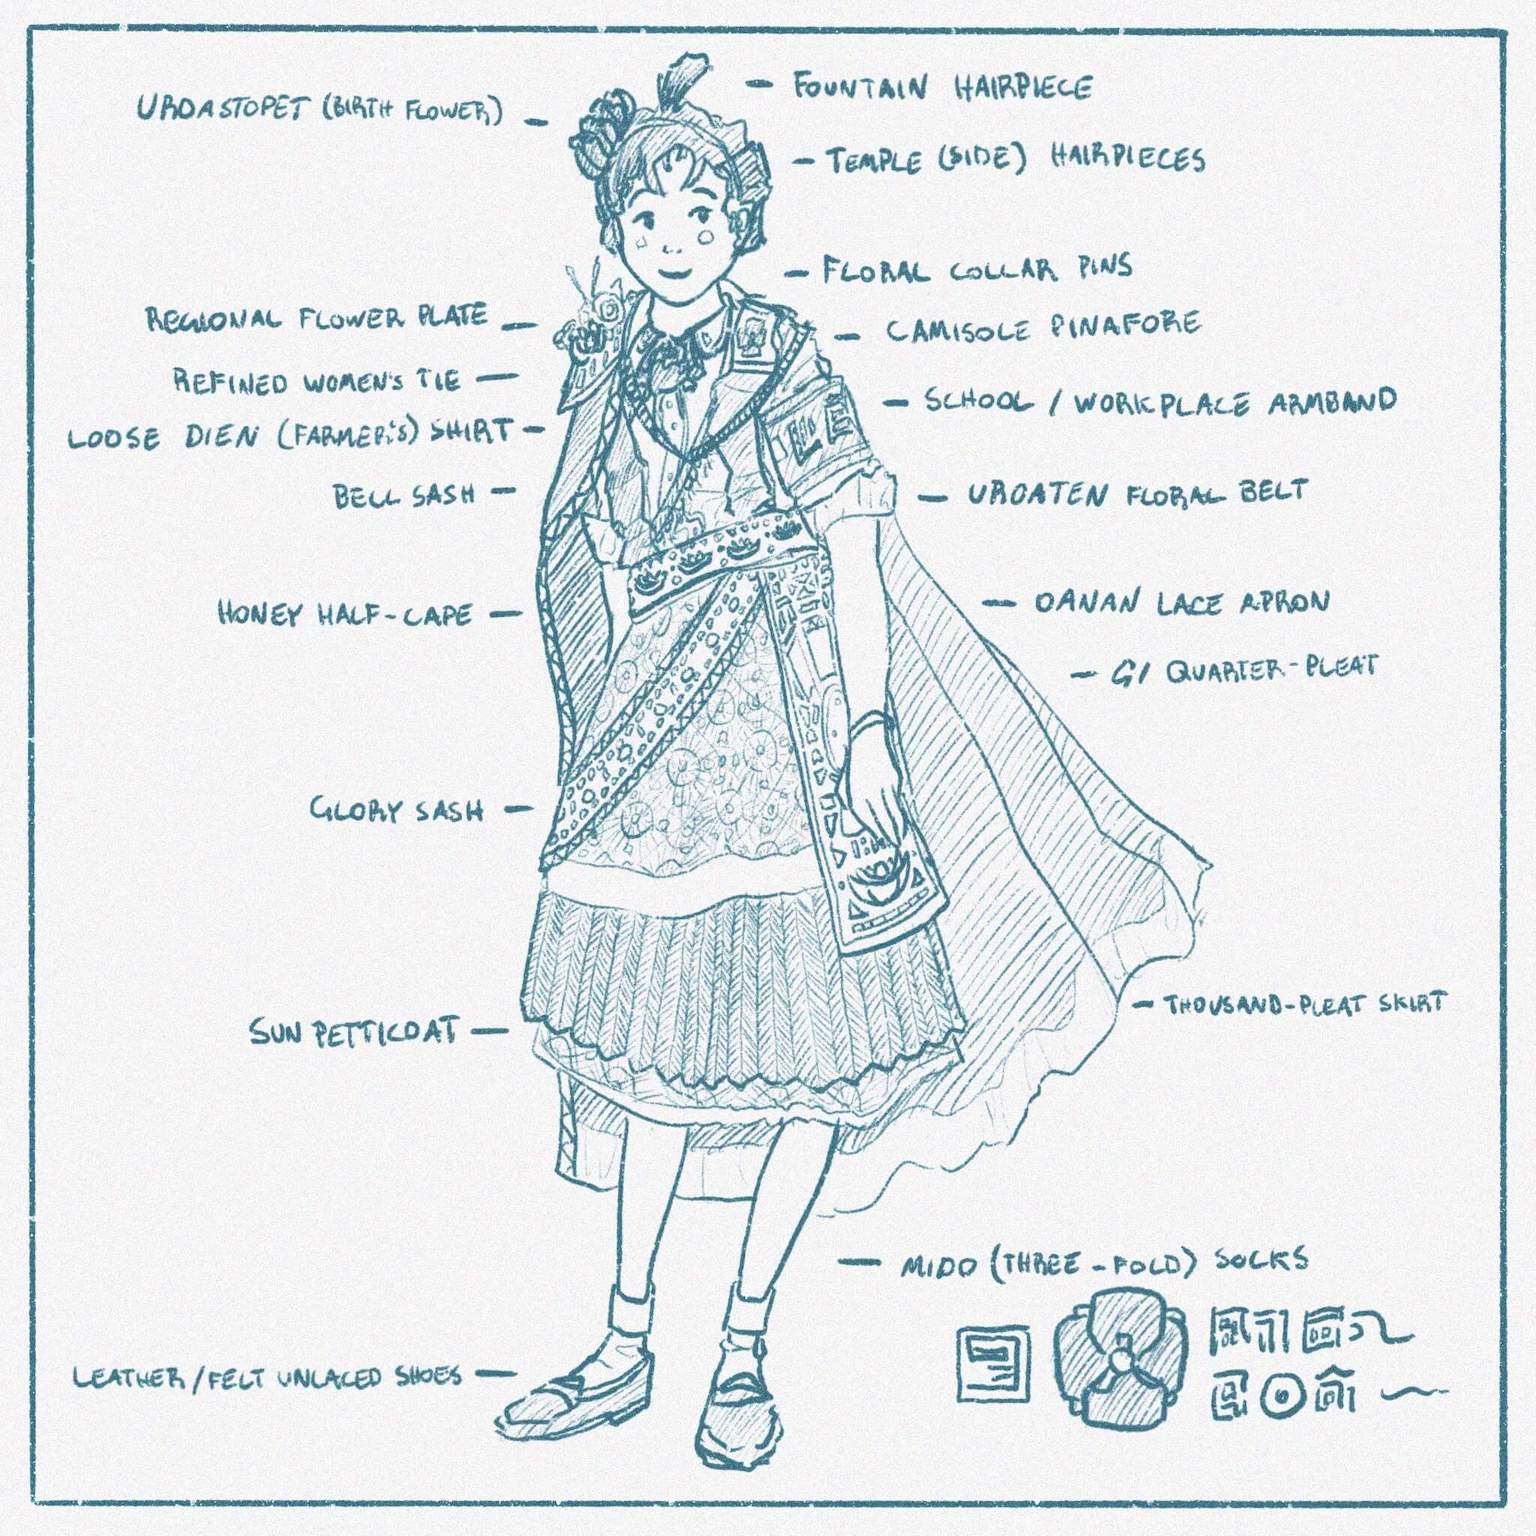 URDASTOPET (BIRTH FLOWER)
REGIONAL FLOWER PLATE
REFINED WOMEN'S TIE
LOOSE DIEN (FARMER'S) SHIRT
BELL SASH
HONEY HALF-CAPE
GLORY SASH
SUN PETTICOAT
LEATHER/FELT UNLACED SHOES
FOUNTAIN HAIRPIECE
TEMPLE (SIDE) HAIRPIECES
FLORAL COLLAR PINS
CAMISOLE PINAFORE
SCHOOL / WORKPLACE ARMBAND
FLORAL BELT
LACE APRON
QUARTER-PLEAT
THOUSAND-PLEAT SKIRT
MIDO (THREE-FOLD) SOCKS